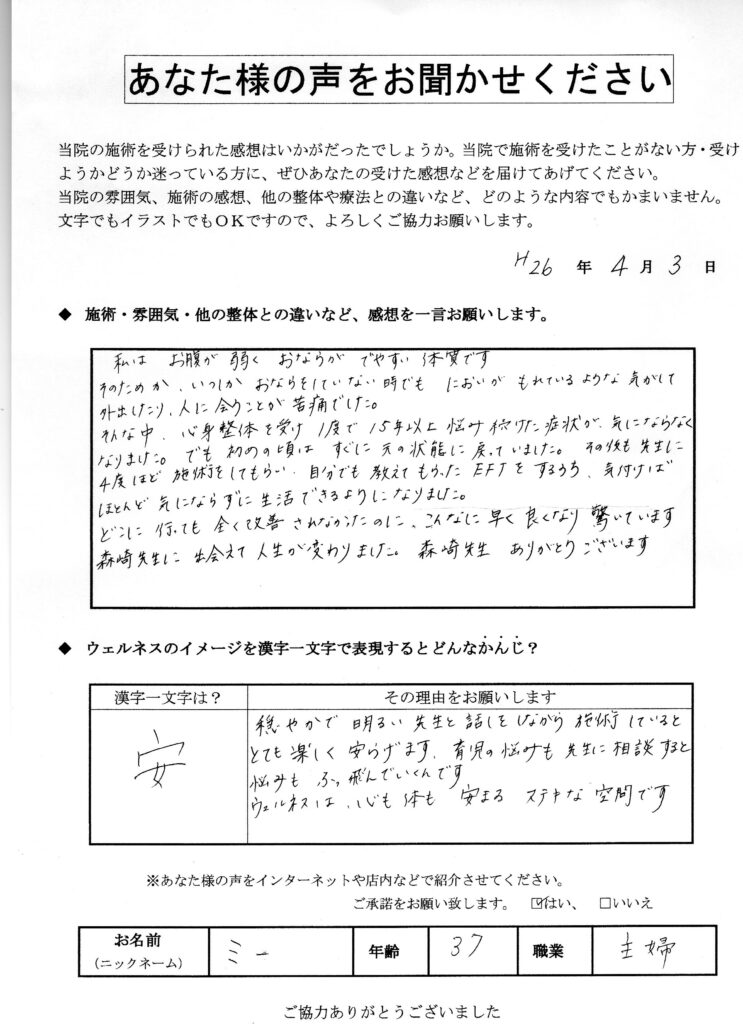 あなた様の声をお聞かせください
当院の施術を受けられた感想はいかがだったでしょうか。当院で施術を受けたことがない方・受け
ようかどうか迷っている方に、ぜひあなたの受けた感想などを届けてあげてください。
当院の雰囲気、施術の感想、他の整体や療法との違いなど、どのような内容でもかまいません。
文字でもイラストでもOKですので、よろしくご協力お願いします。
H26 年 4 月 3 日
◆ 施術・雰囲気・他の整体との違いなど、感想を一言お願いします。
私は お腹が 弱く おならが でやすい 体質です
そのためか、いつしか おならをしていない時でも においが もれているような 気がして
外出したり、人に会うことが 苦痛でした。
そんな中、心身整体を受け 1度で 15年以上 悩み続けた症状が、気にならなく
なりました。でも 初めの頃は すぐに元の状態に 戻っていました。その後も先生に
4度ほど 施術をしてもらい、自分でも 教えてもらった EFTを するうち、気付けば
ほとんど 気にならずに生活できるようになりました。
どこに 行っても 全く改善 されなかったのに、こんなに 早く 良くなり 驚いています
森崎先生に 出会えて 人生が変わりました。森崎先生 ありがとうございます
◆ ウェルネスのイメージを漢字一文字で表現するとどんなかんじ？
漢字一文字は？ その理由をお願いします
安
穏やかで 明るい 先生と 話しをしながら 施術していると
とても 楽しく 安らげます、育児の悩みも 先生に相談すると
悩みも ふっ飛んでいくんです
ウェルネスは、心も体も 安まる ステキな 空間です
※あなた様の声をインターネットや店内などで紹介させてください。
ご承諾をお願い致します。 ☑はい、 □いいえ
お名前 ミー 年齢 37 職業 主婦
(ニックネーム)
ご協力ありがとうございました